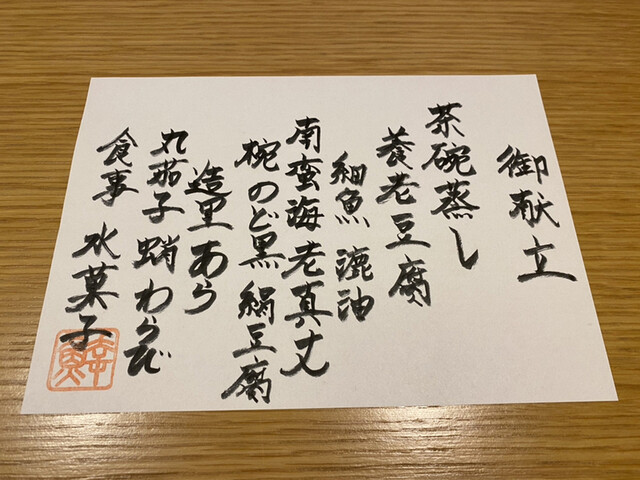 御献立
茶碗蒸し
養老豆腐
細魚 漉油
南蛮海老真丈
椀のど黒 絹豆腐
造里あら
丸茄子 蛸わらび
食事 水菓子